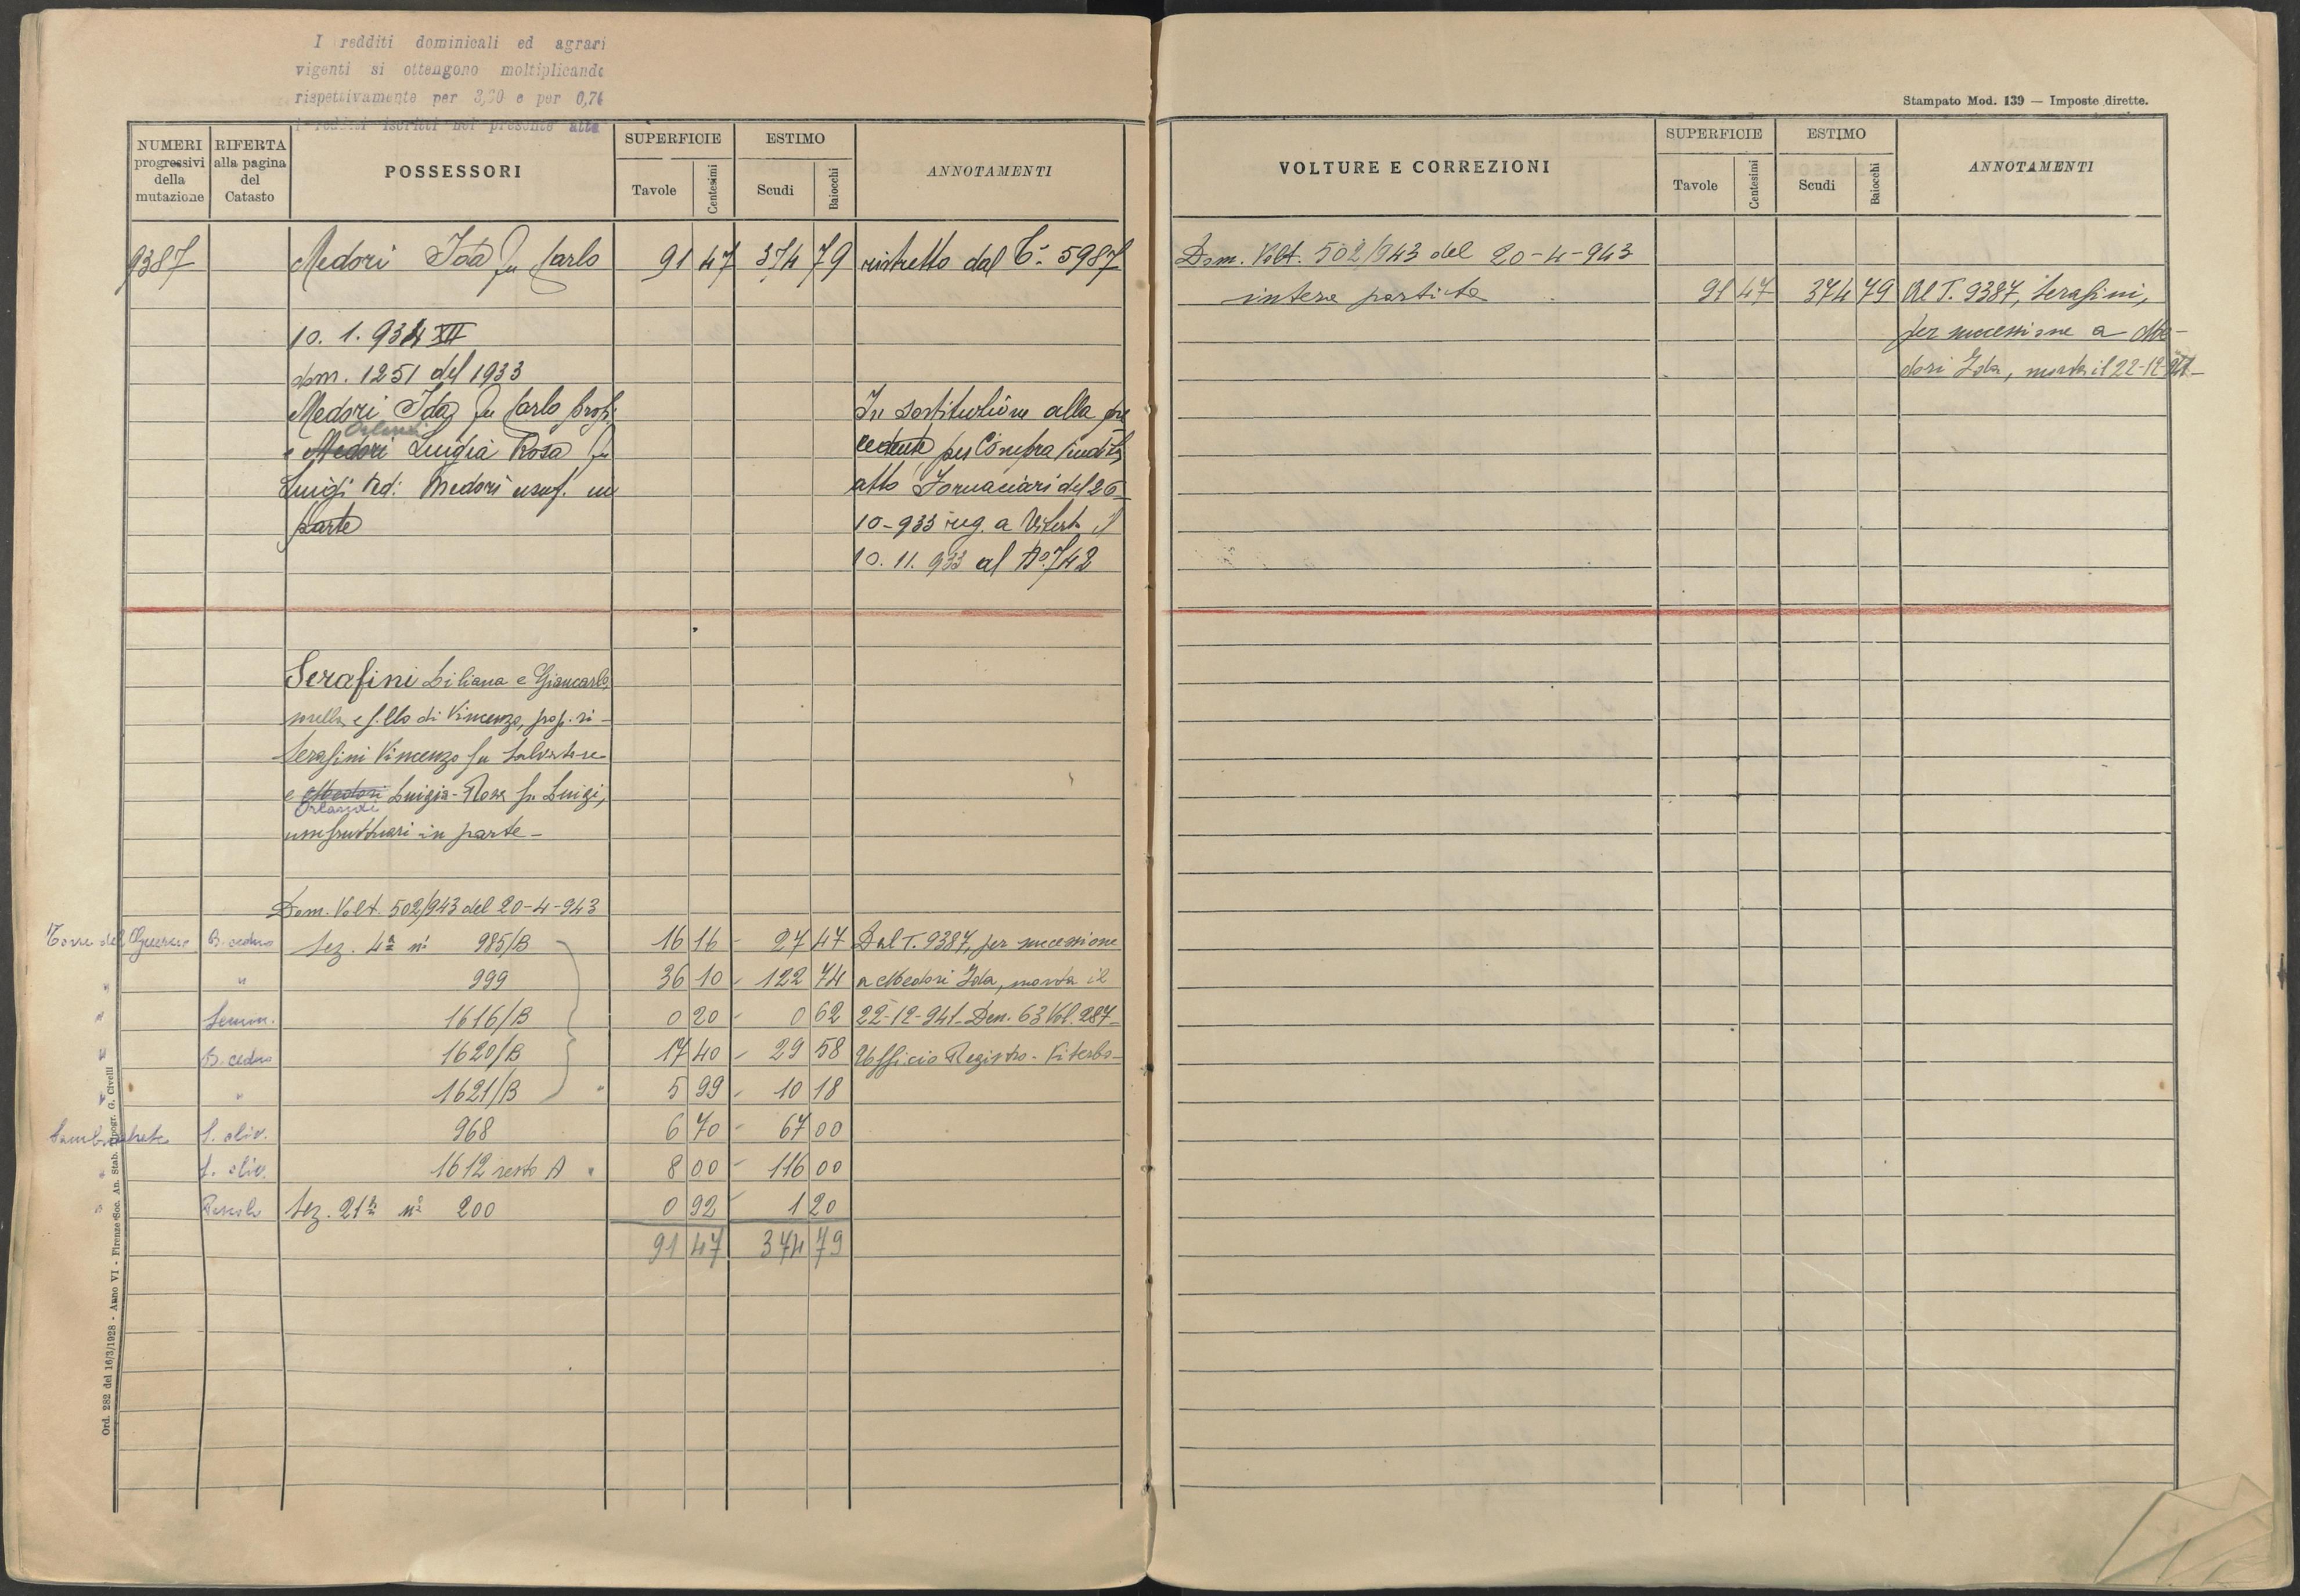 I redditi dominicali ed agrari
vigenti si ottengono moltiplicando
rispettivamente per 3,30 e per 0,74
i redditi iscritti nel presente atto
NUMERI progressivi della mutazione
RIFERTA alla pagina del Catasto
POSSESSORI
SUPERFICIE
Tavole
Centesimi
ESTIMO
Scudi
Baiocchi
ANNOTAMENTI
9387 Medori Ida fu Carlo 91 47 374 79 ristretto dal T. 5987
10. 1. 934 XII
dom. 1251 del 1933
Medori Ida fu Carlo prop.
e Medori Orlandi Luigia Rosa fu
Luigi Ved. Medori usuf. in
parte
In sostituzione alla pre
cedente per Compra Vendita
atto Fornaciari del 26
10-933 reg. a Viterbo il
10. 11. 933 al No. 742
Serafini Liliana e Giancarlo,
sorella e f.llo di Vincenzo, prop.ri-
Serafini Vincenzo fu Salvatore
e Medori Orlandi Luigia-Rosa fu Luigi,
usufruttuari in parte-
Dom. Volt. 502/943 del 20-4-943
B. ceduo Sez. 4a n° 985/B 16 16 - 27 47 Dal T. 9387, per successione
" " 999 36 10 - 122 74 a Medori Ida, morta il
" Semin. 1616/B 0 20 - 0 62 22-12-941-Den. 63 Vol. 287-
" B. ceduo 1620/B 17 40 - 29 58 Ufficio Registro-Viterbo-
" " 1621/B 5 99 - 10 18
S. oliv. 968 6 70 - 67 00
" S. oliv. 1612 resto A 8 00 - 116 00
" Pascolo Sez. 21a n° 200 0 92 - 1 20
91 47 374 79
Ord. 282 del 16/3/1928 - Anno VI - Firenze Soc. An. Stab. Tipogr. G. Civelli
Stampato Mod. 139 — Imposte dirette.
VOLTURE E CORREZIONI
SUPERFICIE
Tavole
Centesimi
ESTIMO
Scudi
Baiocchi
ANNOTAMENTI
Dom. Volt. 502/943 del 20-4-943
intera partita 91 47 374 79 Al T. 9387, Serafini,
per successione a Me-
dori Ida, morta il 22-12-941-